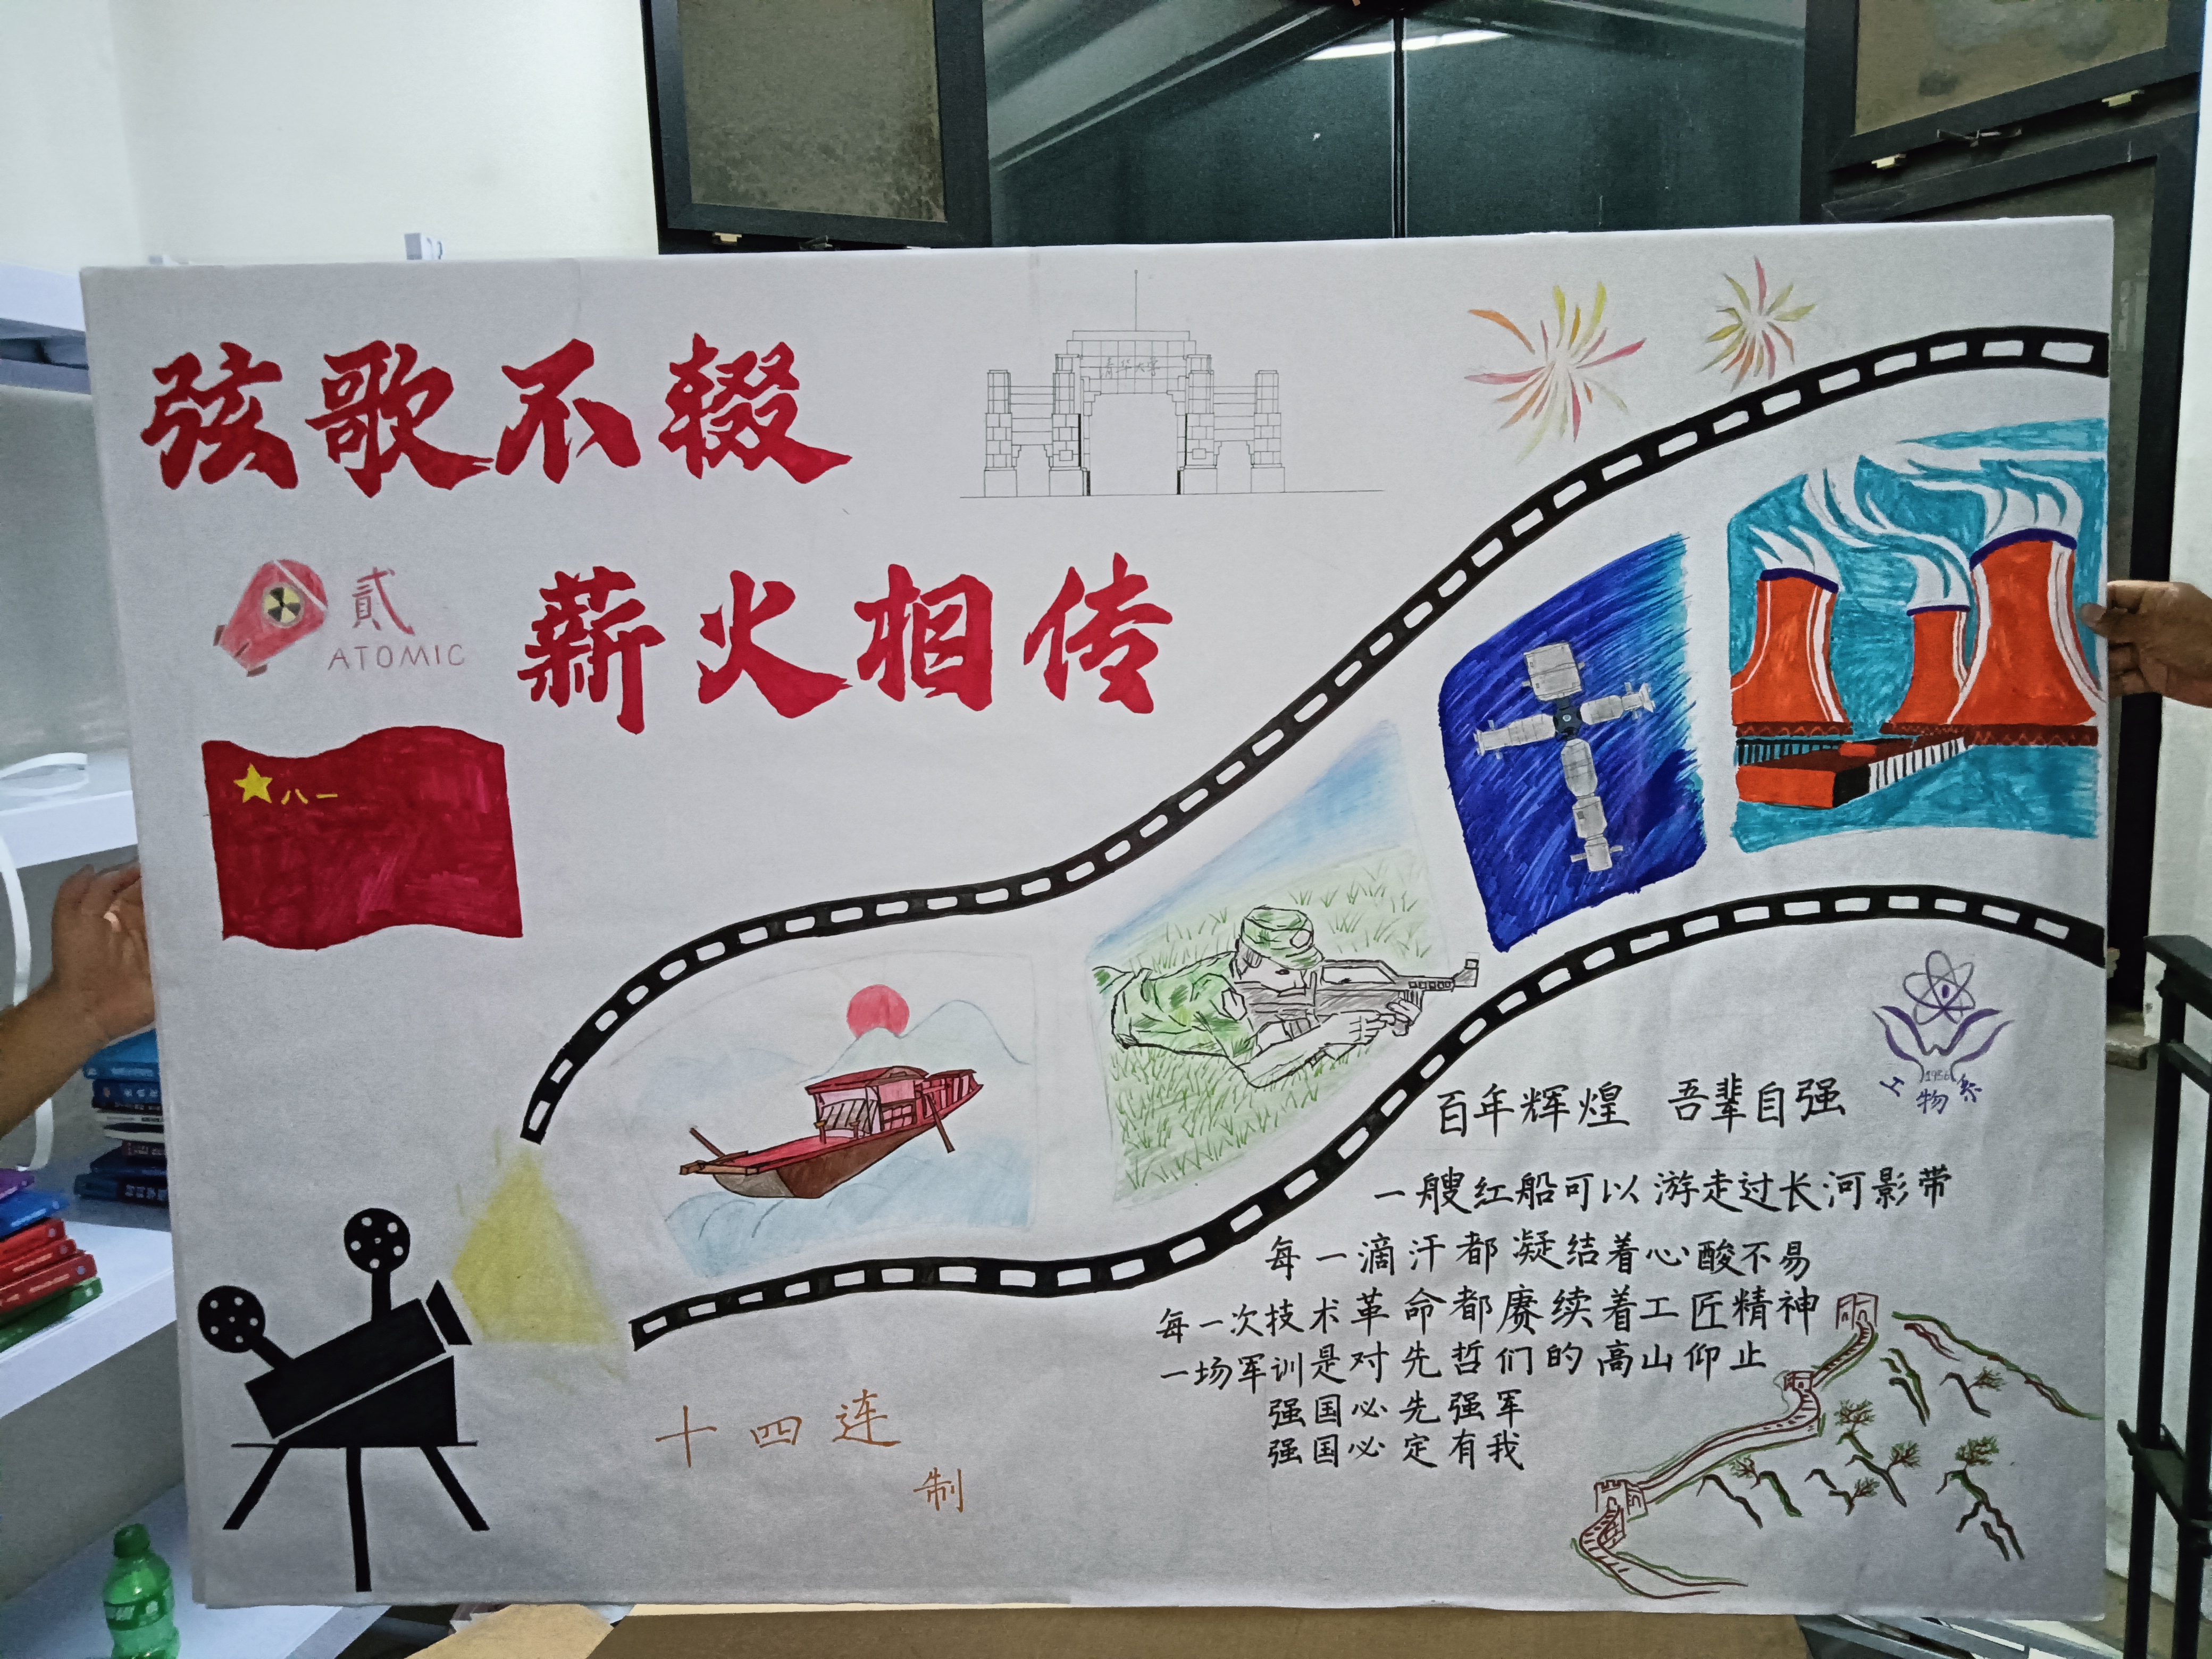 弦歌不辍
清华大学
薪火相传
贰
ATOMIC
八一
1956
工物系
百年辉煌 吾辈自强
一艘红船可以游走过长河影带
每一滴汗都凝结着心酸不易
每一次技术革命都赓续着工匠精神
一场军训是对先哲们的高山仰止
强国必先强军
强国必定有我
十四连
制